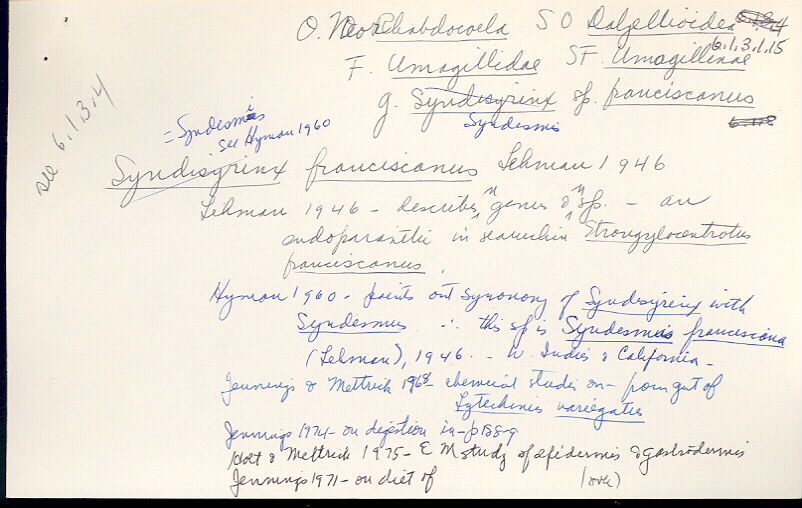 O. Neorhabdocoela S O Dalyellioidea 6.1.3.4
6.1.3.1.15
F. Umagillidae SF Umagillinae
g. Syndisyrinx sp. franciscanus
Syndesmis
see 6.1.3.4
= Syndesmis
see Hyman 1960
Syndisyrinx franciscanus Lehman 1946
Lehman 1946 - describes n genus & n sp. - an
endoparasitic in sea urchin Strongylocentrotus
franciscanus.
Hyman 1960 - points out synonomy of Syndisyrinx with
Syndesmis ∴ this sp is Syndesmis franciscana
(Lehman), 1946. - W. Indies & California -
Jennings & Mettrick 1968 - chemical studies on - from gut of
Lytechinus variegatus
Jennings 1974 - on digestion in - p188-9
Holt & Mettrick 1975 - E M study of epidermis & gastrodermis
Jennings 1971 - on diet of (over)